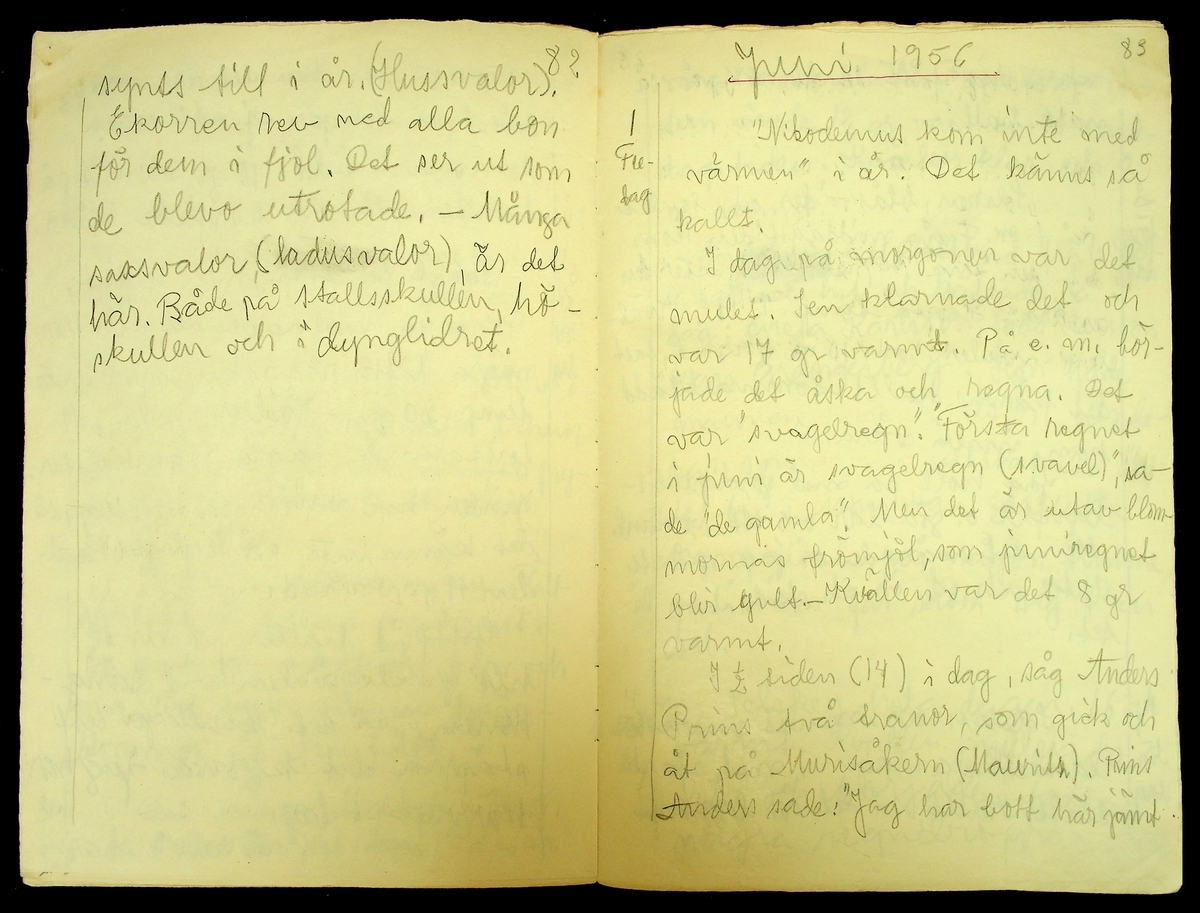 82
synts till i år. (Hussvalor).
Ekorren rev ned alla bon
för dem i fjol. Det ser ut som
de blevo utrotade. – Många
saxsvalor (ladusvalor), är det
här. Både på stallsskullen, hö-
skullen och i dynglidret.
83
Juni 1956
1
Fre-
dag
"Nikodemus kom inte med
värmen" i år. Det känns så
kallt.
I dag på morgonen var det
mulet. Sen klarnade det och
var 17 gr varmt. På e. m. bör-
jade det åska och regna. Det
var "svagelregn". "Första regnet
i juni är svagelregn (svavel)", sa-
de "de gamla". Men det är utav blom-
mornas frömjöl, som juniregnet
blir gult. – Kvällen var det 8 gr
varmt.
I ½ siden (14) i dag, såg Anders
Prins två tranor, som gick och
åt på Murisåkern (Mauritz). Prins
Anders sade: "Jag har bott här jämt